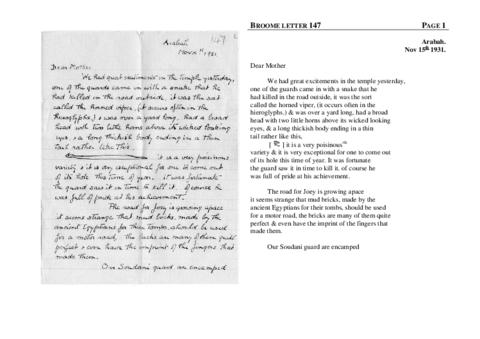 147
Arabah.
Nov 15th 1931.
Dear Mother
We had great excitements in the temple yesterday,
one of the guards came in with a snake that he
had killed in the road outside, it was the sort
called the horned viper, (it occurs often in the
hieroglyphs,) & was over a yard long, had a broad
head with two little horns above its wicked looking
eyes, & a long thickish body ending in a thin
tail rather like this,
it is a very poisonous
variety & it is very exceptional for one to come out
of its hole this time of year. It was fortunate
the guard saw it in time to kill it. of course he
was full of pride at his achievement.
The road for Joey is growing apace
it seems strange that mud bricks, made by the
ancient Egyptians for their tombs, should be used
for a motor road, the bricks are many of them quite
perfect & even have the imprint of the fingers that
made them.
Our Soudani guard are encamped
BROOME LETTER 147 PAGE 1
Arabah.
Nov 15th 1931.
Dear Mother
We had great excitements in the temple yesterday,
one of the guards came in with a snake that he
had killed in the road outside, it was the sort
called the horned viper, (it occurs often in the
hieroglyphs,) & was over a yard long, had a broad
head with two little horns above its wicked looking
eyes, & a long thickish body ending in a thin
tail rather like this,
[ ] it is a very poisinous
variety & it is very exceptional for one to come out
of its hole this time of year. It was fortunate
the guard saw it in time to kill it. of course he
was full of pride at his achievement.
The road for Joey is growing apace
it seems strange that mud bricks, made by the
ancient Egyptians for their tombs, should be used
for a motor road, the bricks are many of them quite
perfect & even have the imprint of the fingers that
made them.
Our Soudani guard are encamped